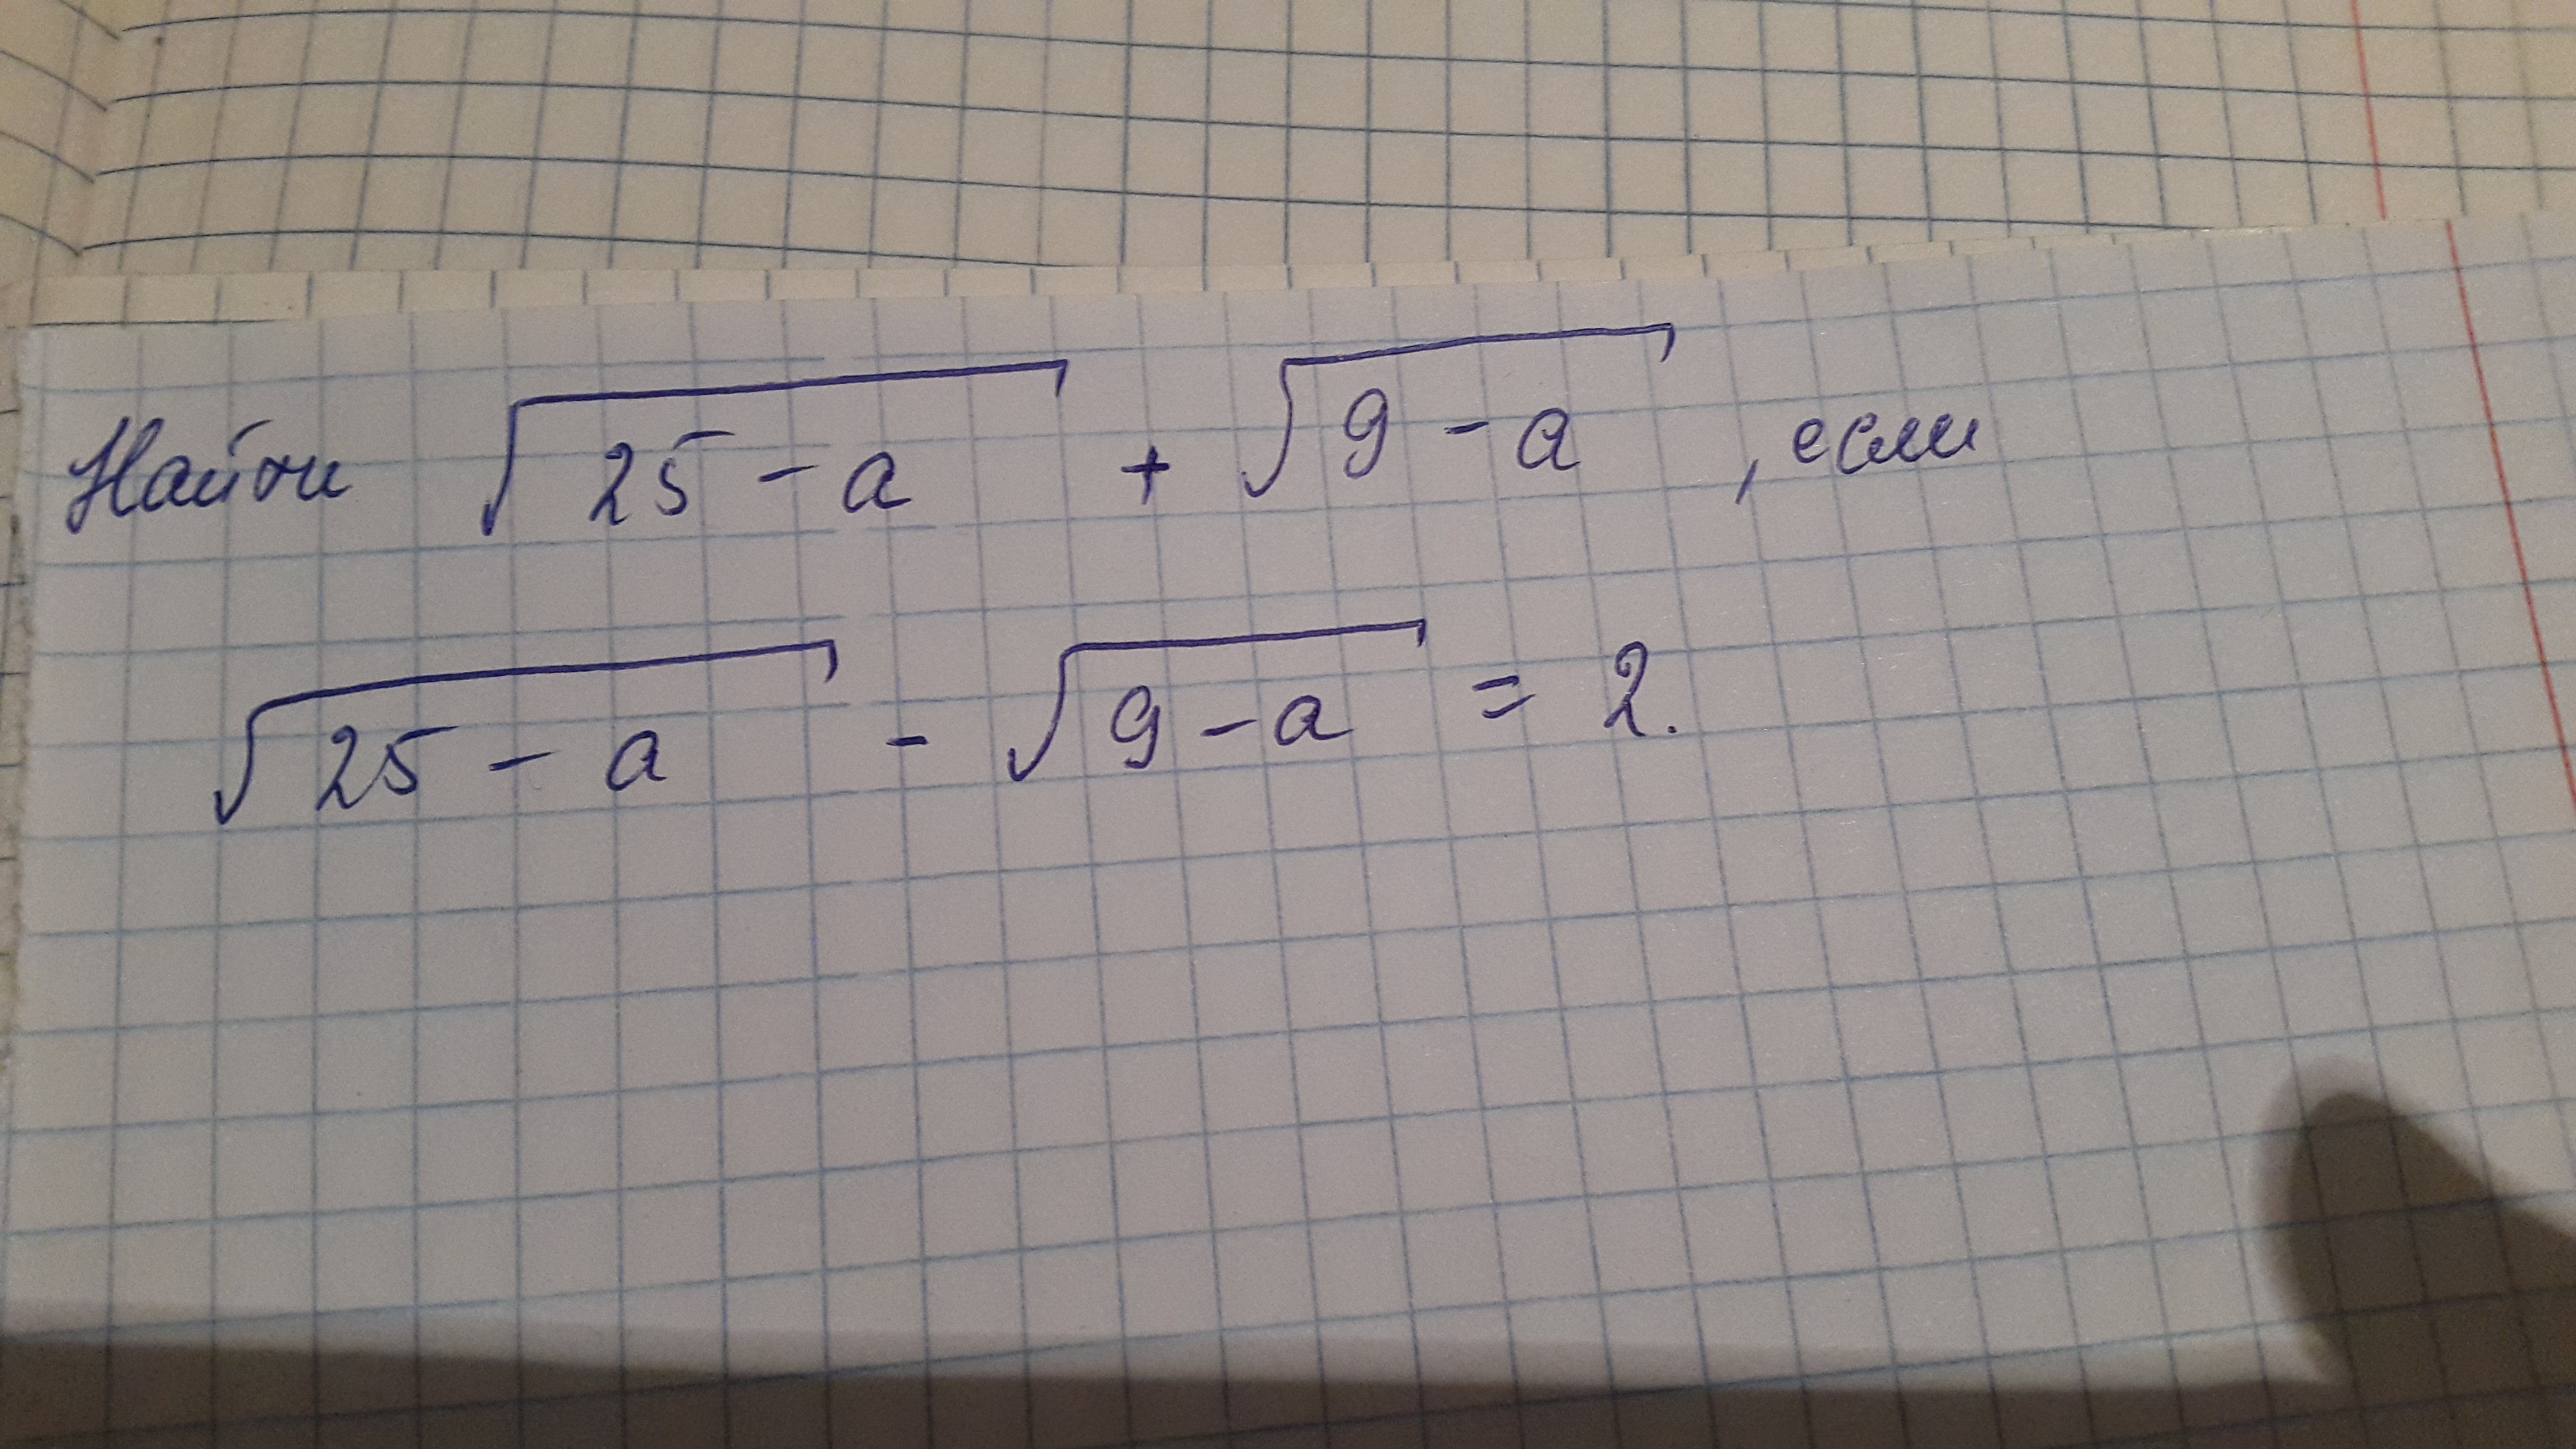 Найти √25 - a + √9 - a , если
√25 - a - √9 - a = 2.